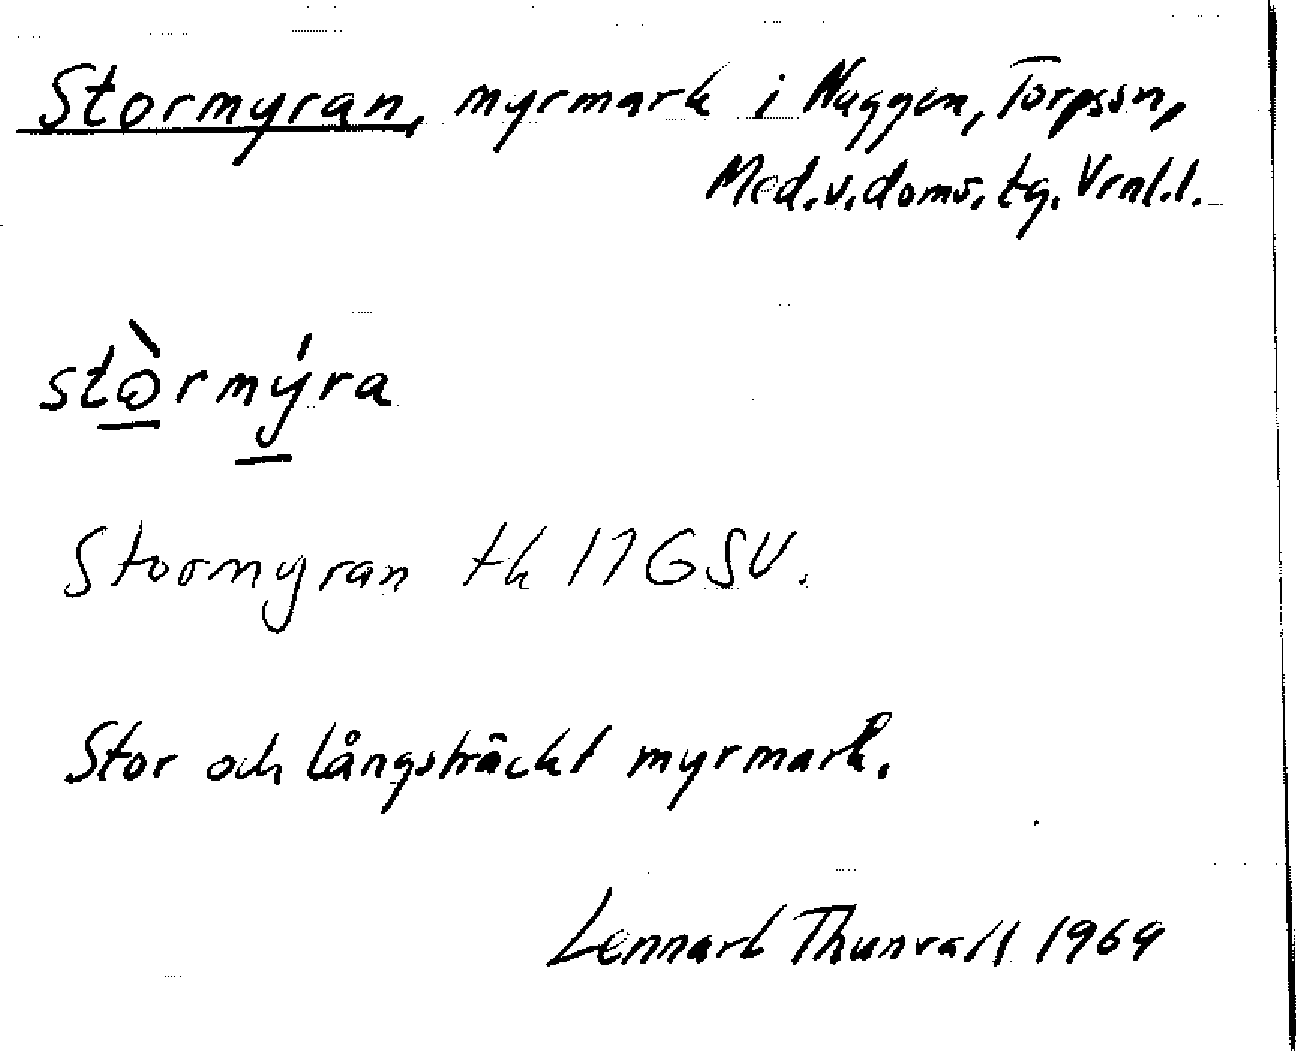 Stormyran, myrmark i Naggen, Torpssn,
Med.v.doms.tg. Vrnl.l.
stòrmýra
Stormyran tk 17GSV.
Stor och långsträckt myrmark.
Lennart Thunvall 1969